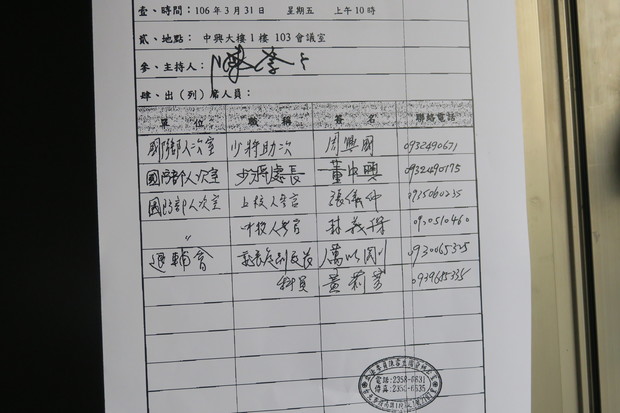 壹、時間：106年3月31日 星期五 上午10時
貳、地點：中興大樓1樓 103會議室
參、主持人：
肆、出（列）席人員：
單位 職稱 簽名 聯絡電話
國防部人次室 少將助次 周興國 0932490671
國防部人次室 少將處長 董中興 0932490175
國防部人次室 上校人參官 張儀仲 0915060235
〃 中校人參官 0930510460
退輔會 萬以剛 0930065325
科員 黃莉芳 0939655335
電話：2358-0831
傳真：2358-6635